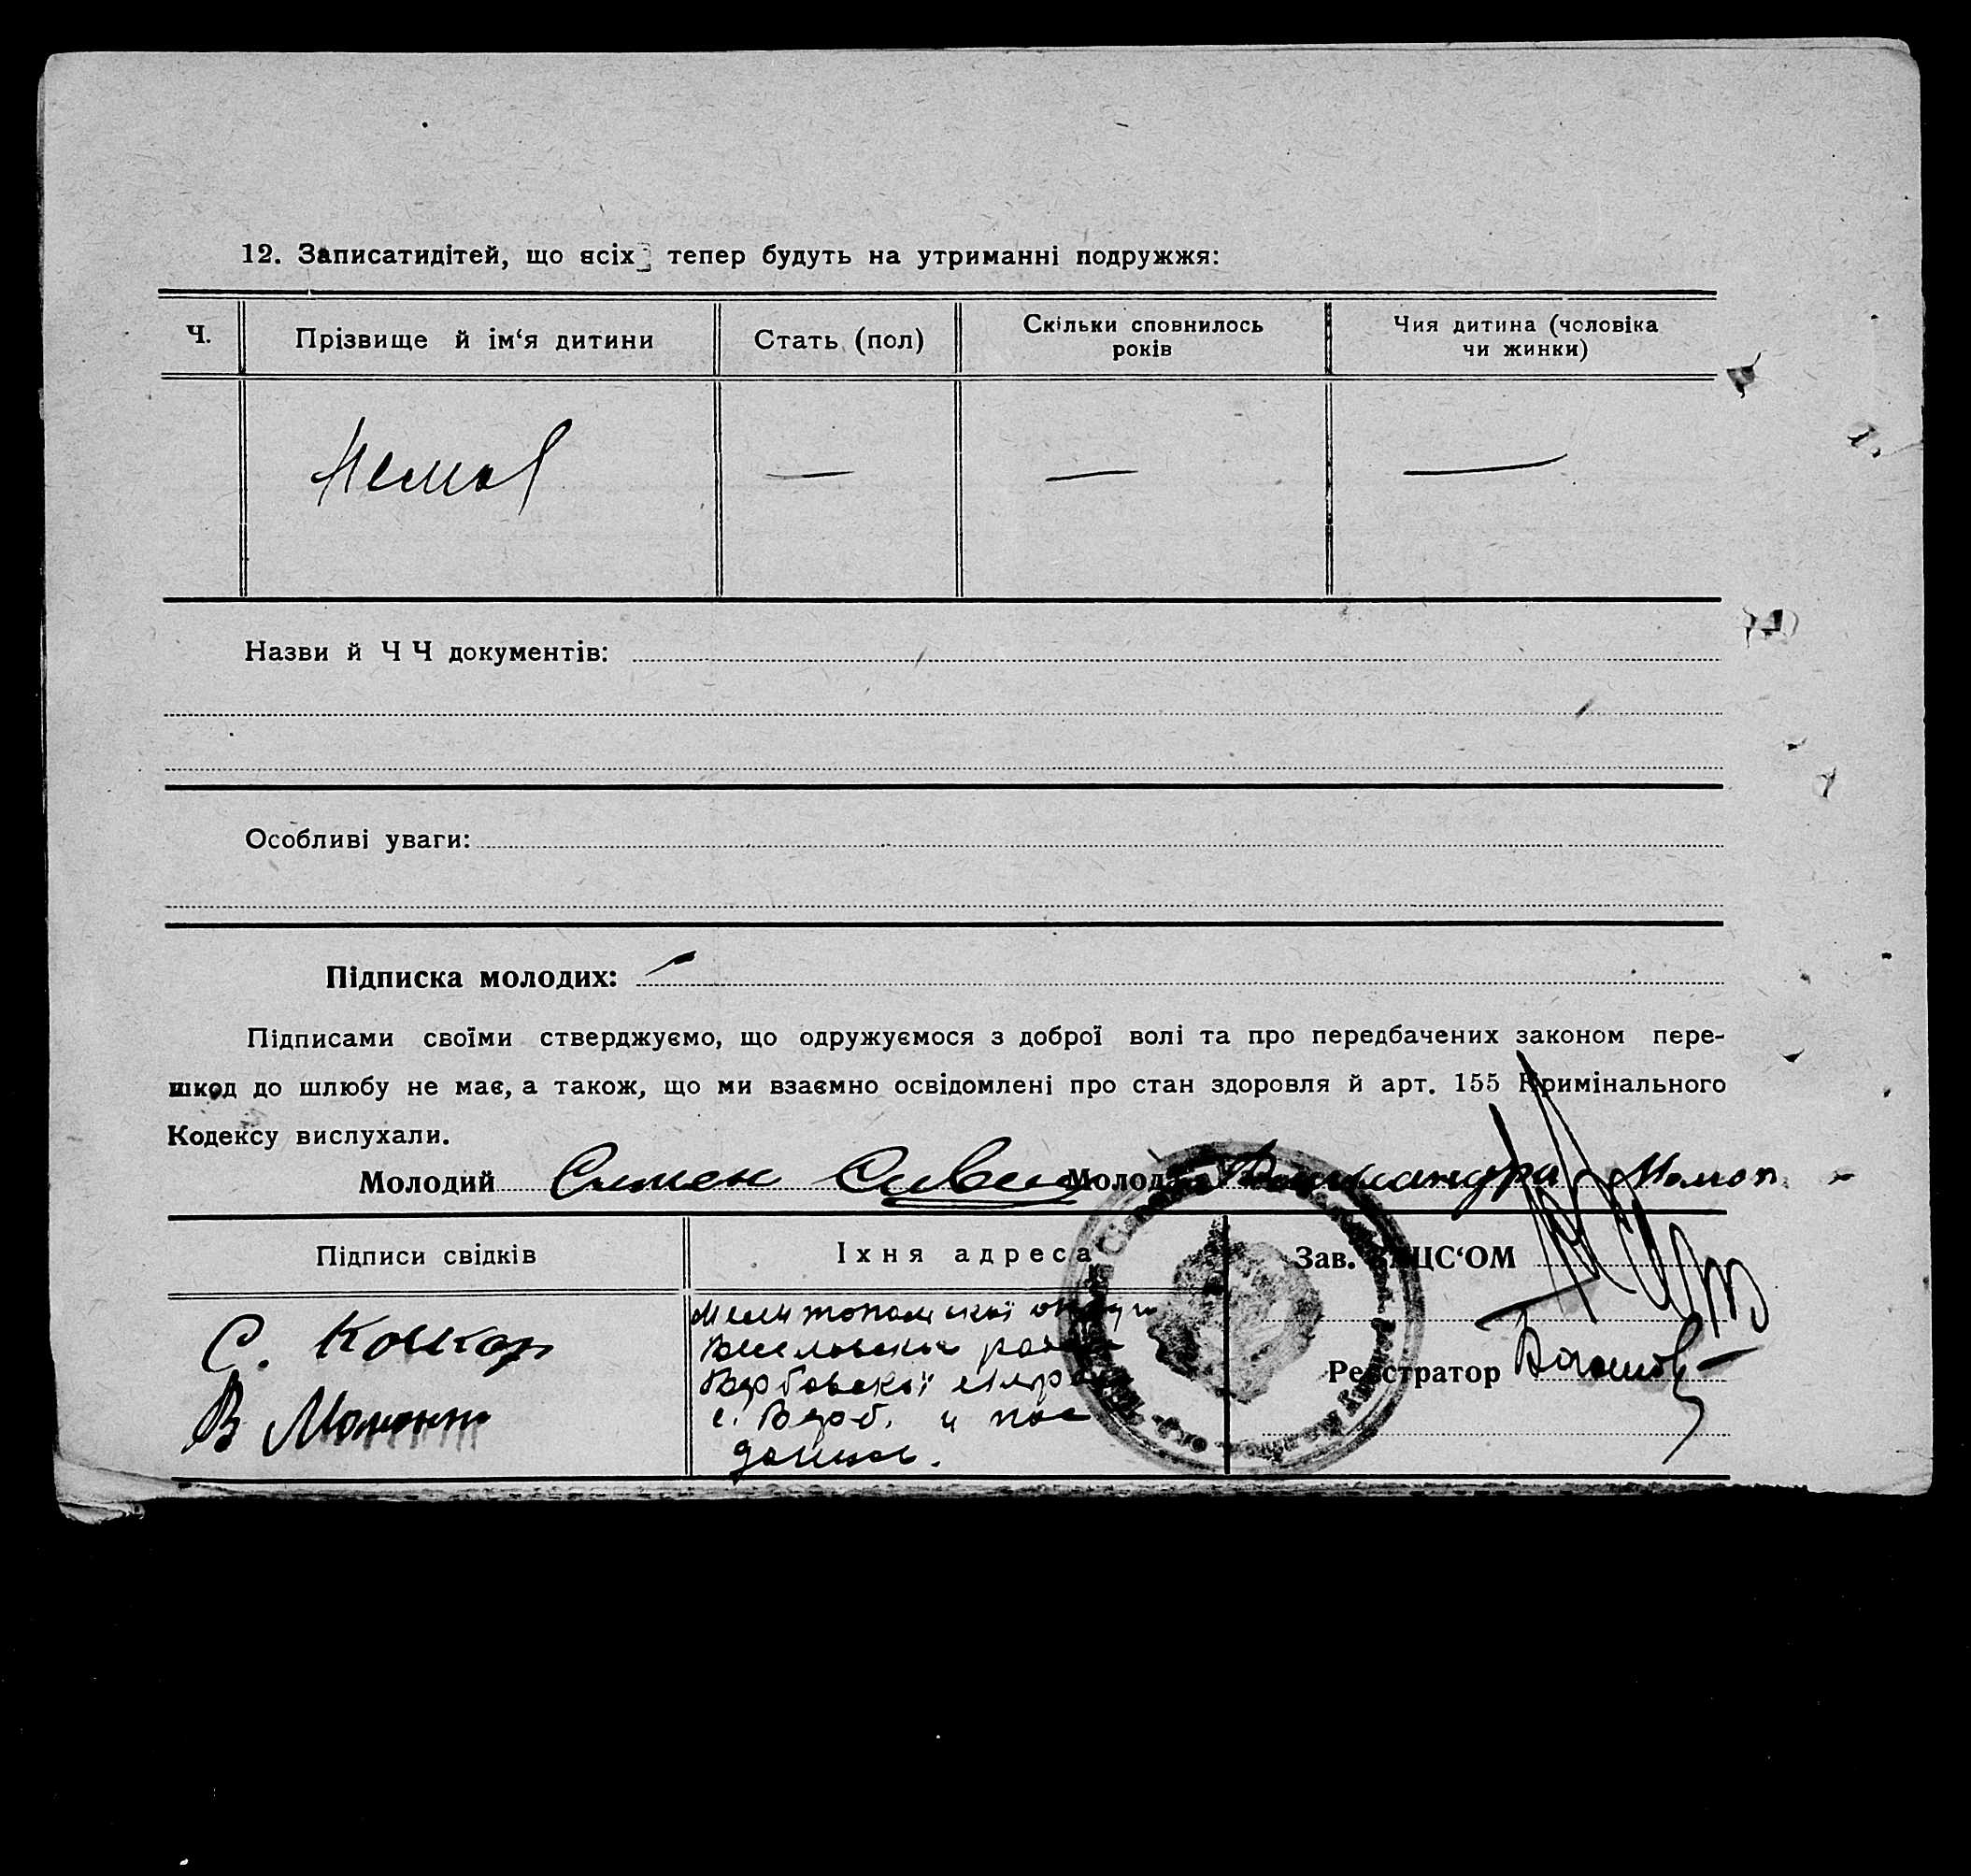 12. Записатидітей, що ясіх тепер будуть на утриманні подружжя:
Ч.
Прізвище й ім‘я дитини
Стать (пол)
Скільки сповнилось
років
Чия дитина (чоловіка
чи жинки)
Немає
—
—
—
Назви й Ч Ч документів:
Особливі уваги:
Підписка молодих:
Підписами своїми стверджуємо, що одружуємося з доброї волі та про передбачених законом пере-
шкод до шлюбу не має, а також, що ми взаємно освідомлені про стан здоровля й арт. 155 Кримінального
Кодексу вислухали.
Молодий Семен Молода
Підписи свідків
Їхня адреса
Зав. ЗАЦС‘ОМ
С. Кошкар
В
Мелитопольської округи
район
с.
Реєстратор